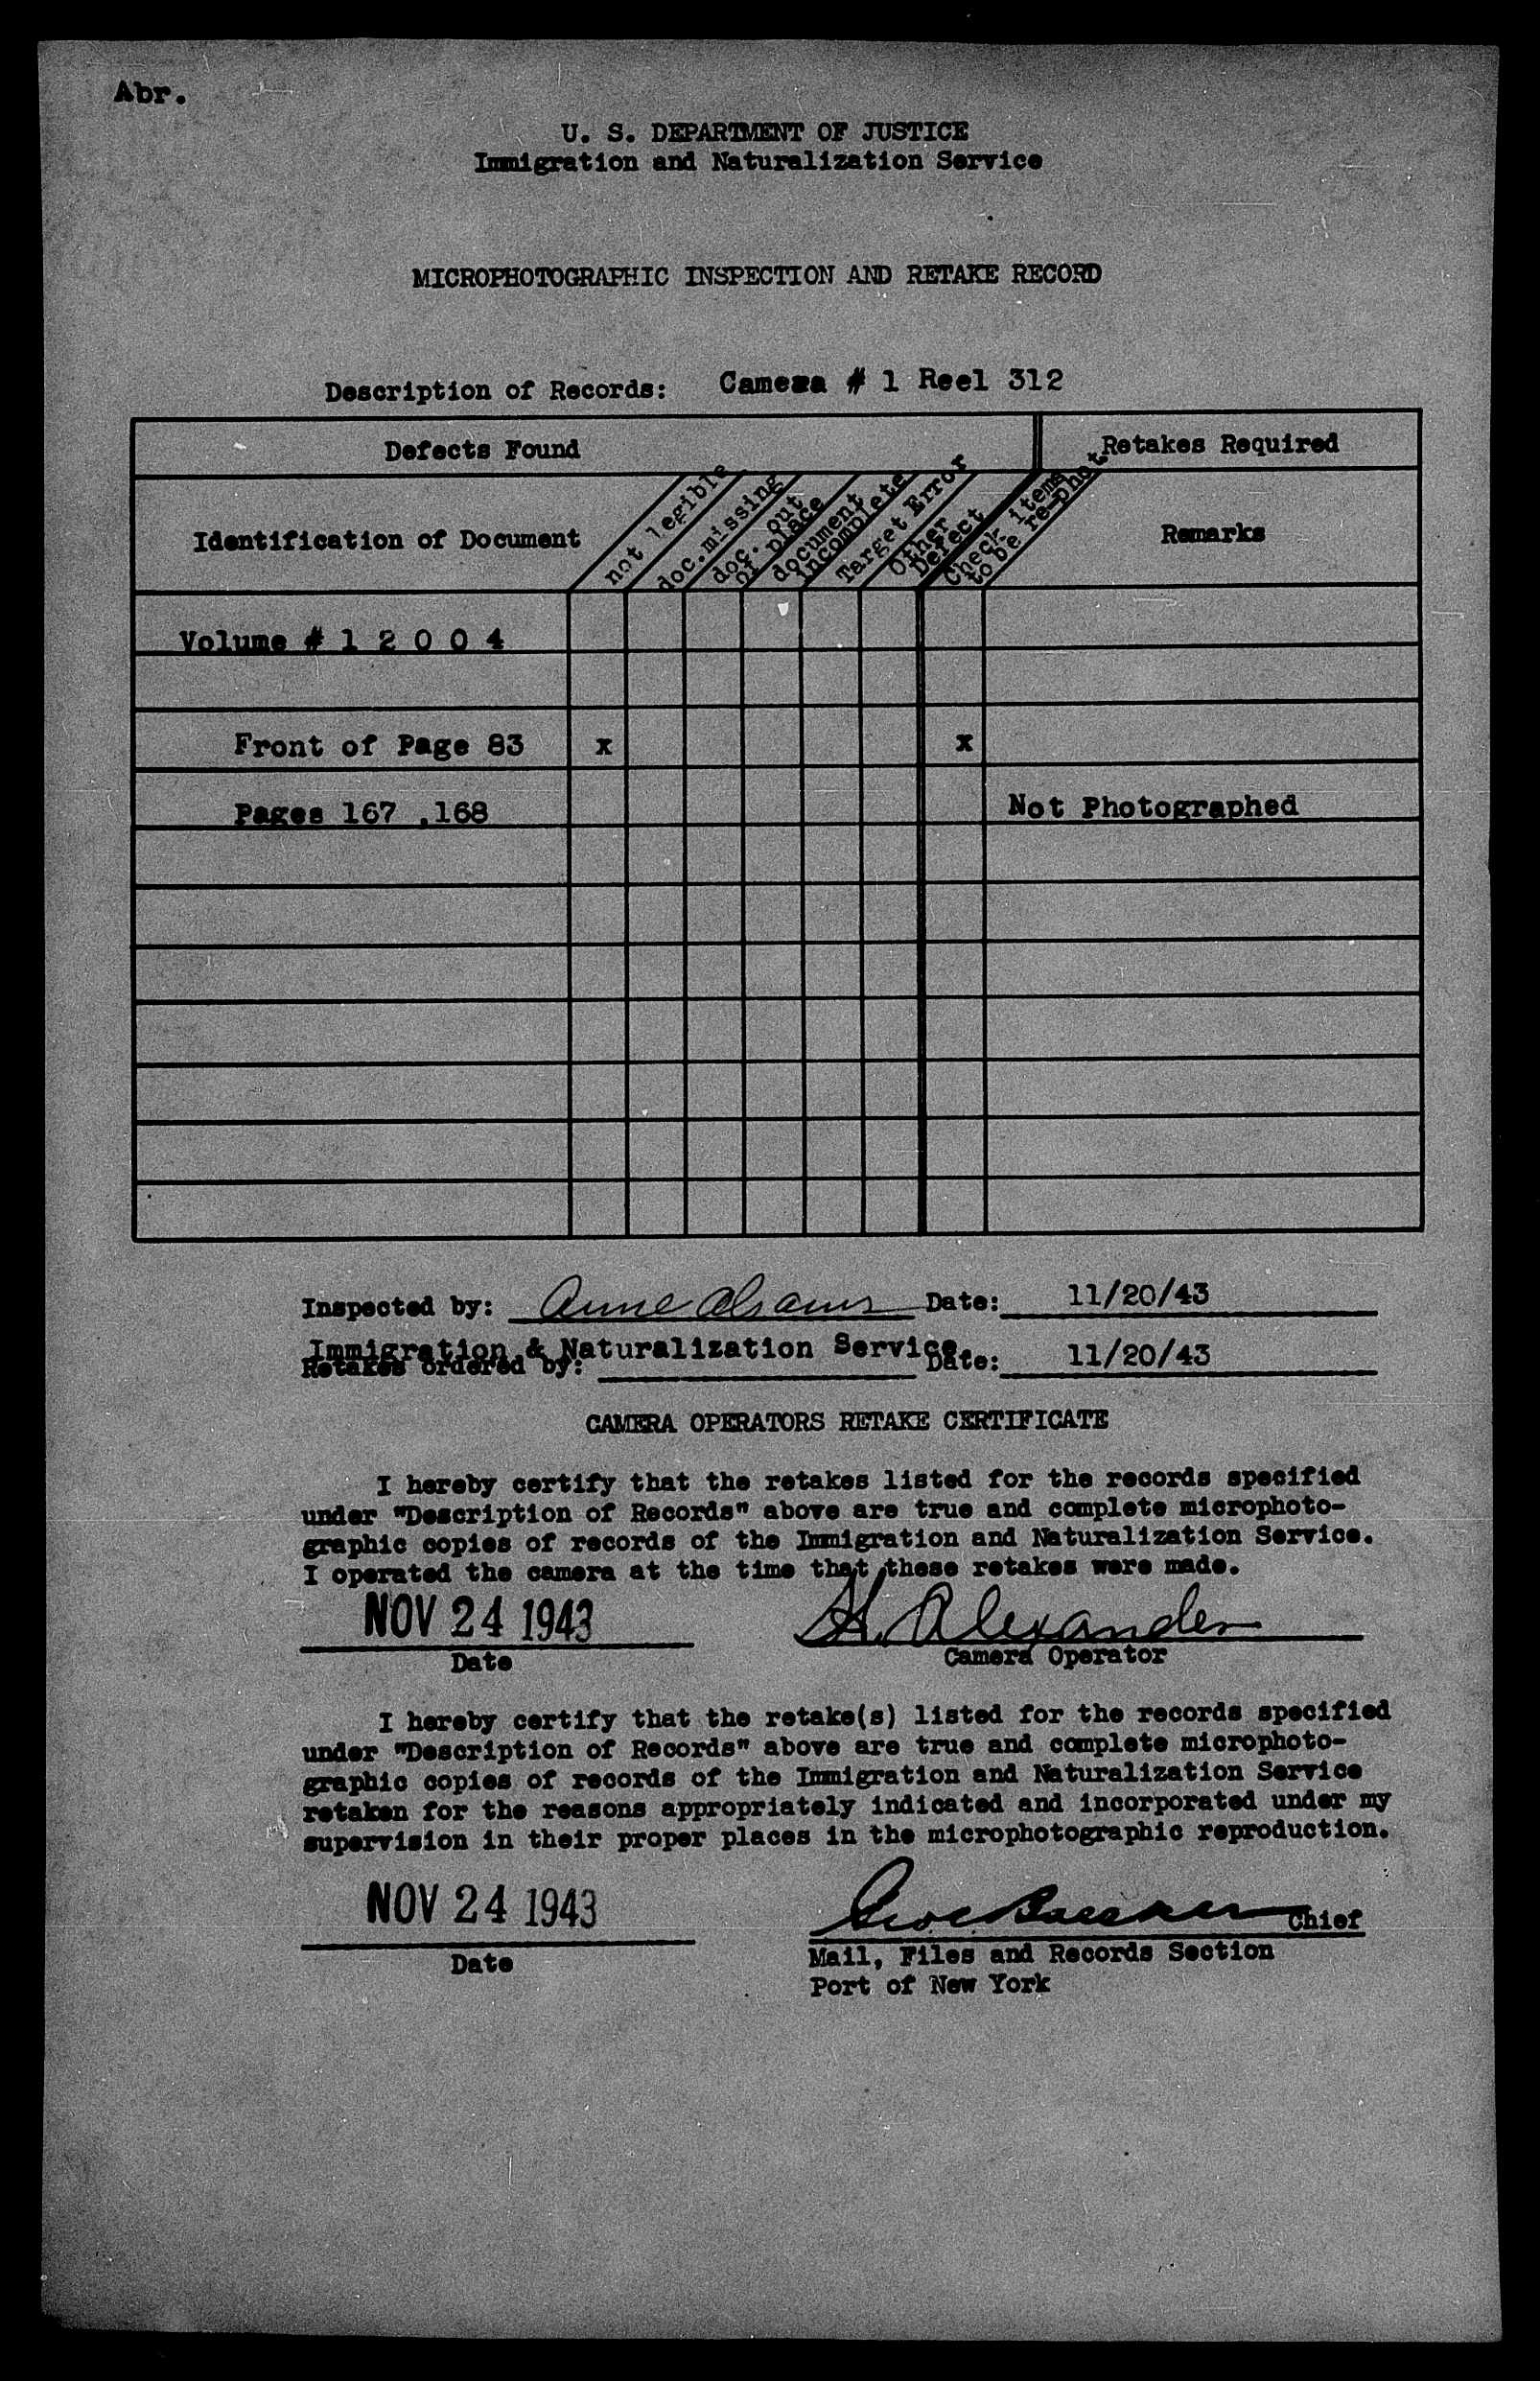 Abr.
U. S. DEPARTMENT OF JUSTICE
Immigration and Naturalization Service
MICROPHOTOGRAPHIC INSPECTION AND RETAKE RECORD
Description of Records: Camera # 1 Reel 312
Defects Found
Retakes Required
Identification of Document
not legible
doc. missing
doc. out
of place
document
incomplete
Target Error
Other
Defect
Check items
to be re-phot
Remarks
Volume # 1 2 0 0 4
Front of Page 83 x x
Pages 167 ,168 Not Photographed
Inspected by: Anne Abrams Date: 11/20/43
Immigration & Naturalization Service.
Retakes ordered by: Date: 11/20/43
CAMERA OPERATORS RETAKE CERTIFICATE
I hereby certify that the retakes listed for the records specified
under "Description of Records" above are true and complete microphoto-
graphic copies of records of the Immigration and Naturalization Service.
I operated the camera at the time that these retakes were made.
NOV 24 1943 H. Alexander
Date Camera Operator
I hereby certify that the retake(s) listed for the records specified
under "Description of Records" above are true and complete microphoto-
graphic copies of records of the Immigration and Naturalization Service
retaken for the reasons appropriately indicated and incorporated under my
supervision in their proper places in the microphotographic reproduction.
NOV 24 1943 Chief
Date Mail, Files and Records Section
Port of New York